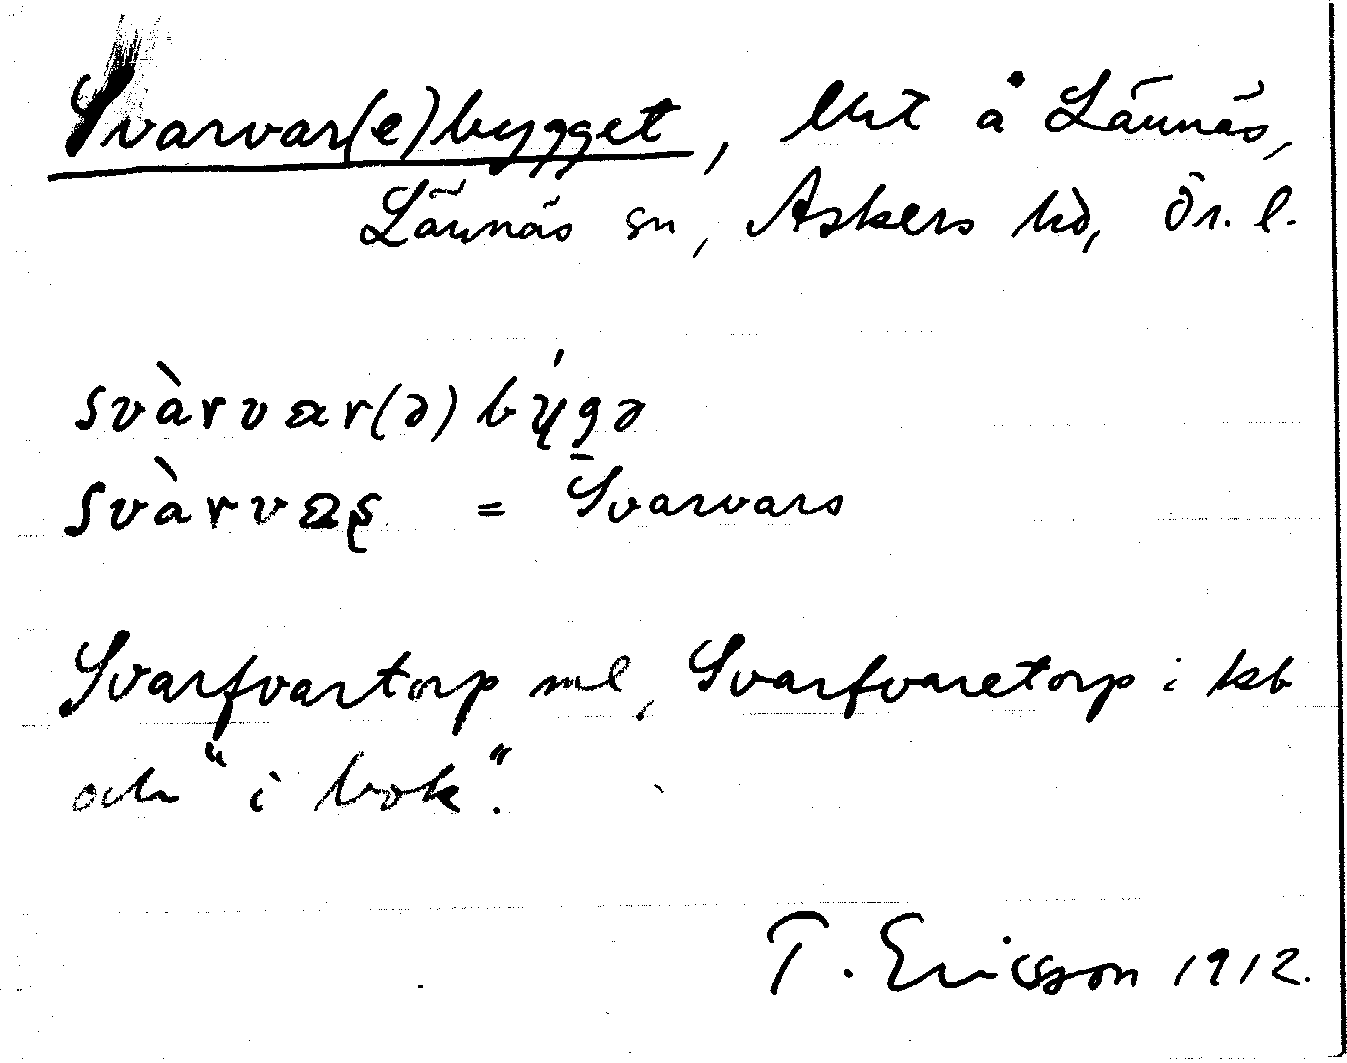 Svarvar(e)bygget, lht å Lännäs,
Lännäs sn, Askers hd, Ör. l.
svàrvar(ə)býgə
svàrvaʂ = Svarvars
Svarfvartorp ml, Svarfvaretorp i kb
och "i bok".
T. Ericsson 1912.